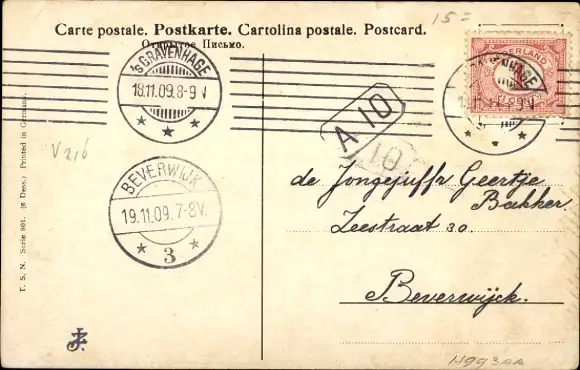 15=
Carte postale. Postkarte. Cartolina postale. Postcard.
Открытое Письмо.
'sGRAVENHAGE
18.11.09.8-9 V
NEDERLAND
A 10
10
V 216
BEVERWIJK
19.11.09.7-8V.
3
de Jongejuffr Geertje
Bakker.
Zeestraat 30.
Beverwijck.
T. S. N. Serie 801. (6 Dess.) Printed in Germany.
H993AA